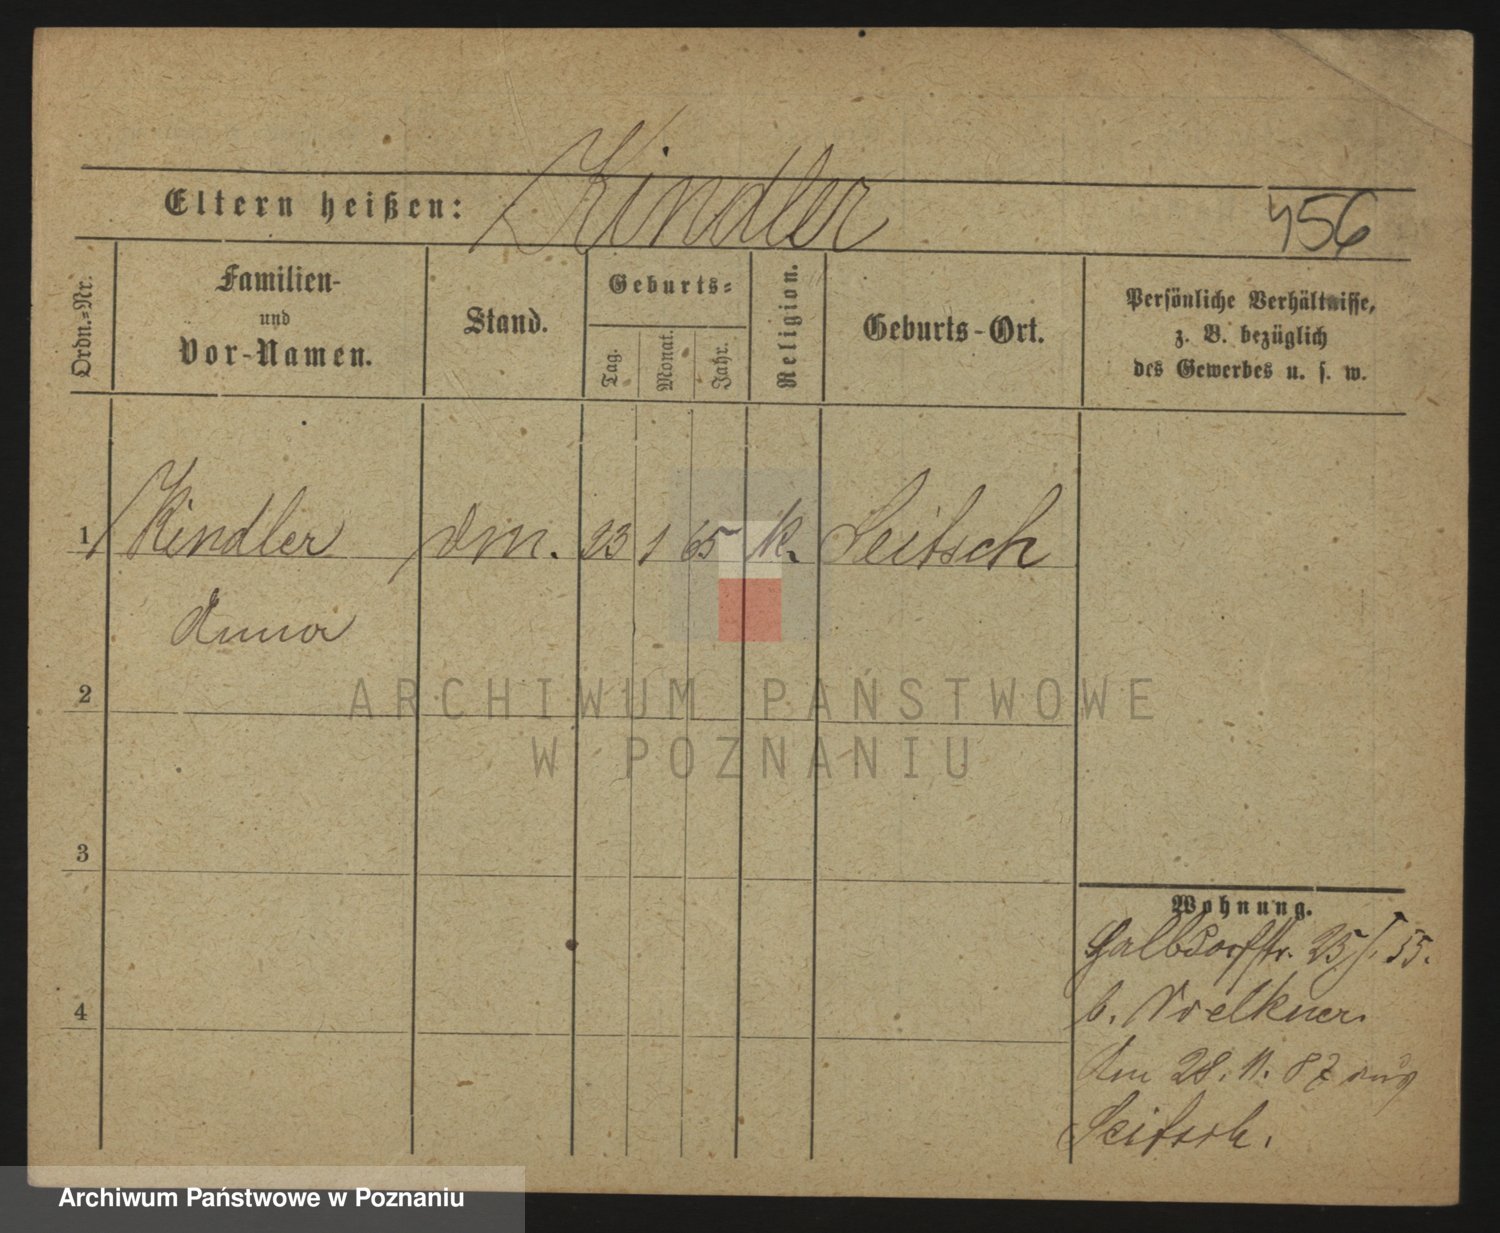 Eltern heißen: Kindler
456
Ordn.-Nr.
Familien-
und
Vor-Namen.
Stand.
Geburts-
Tag.
Monat.
Jahr.
Religion.
Geburts-Ort.
Persönliche Verhältnisse,
z. B. bezüglich
des Gewerbes u. s. w.
1 Kindler dm. 23 1 65 k. Seitsch
Anna
2
ARCHIWUM PAŃSTWOWE
W POZNANIU
3
Wohnung.
Halbdorfstr. 25 55.
b. Voelkner.
4
Am 28. 11. 87
Seitsch.
Archiwum Państwowe w Poznaniu